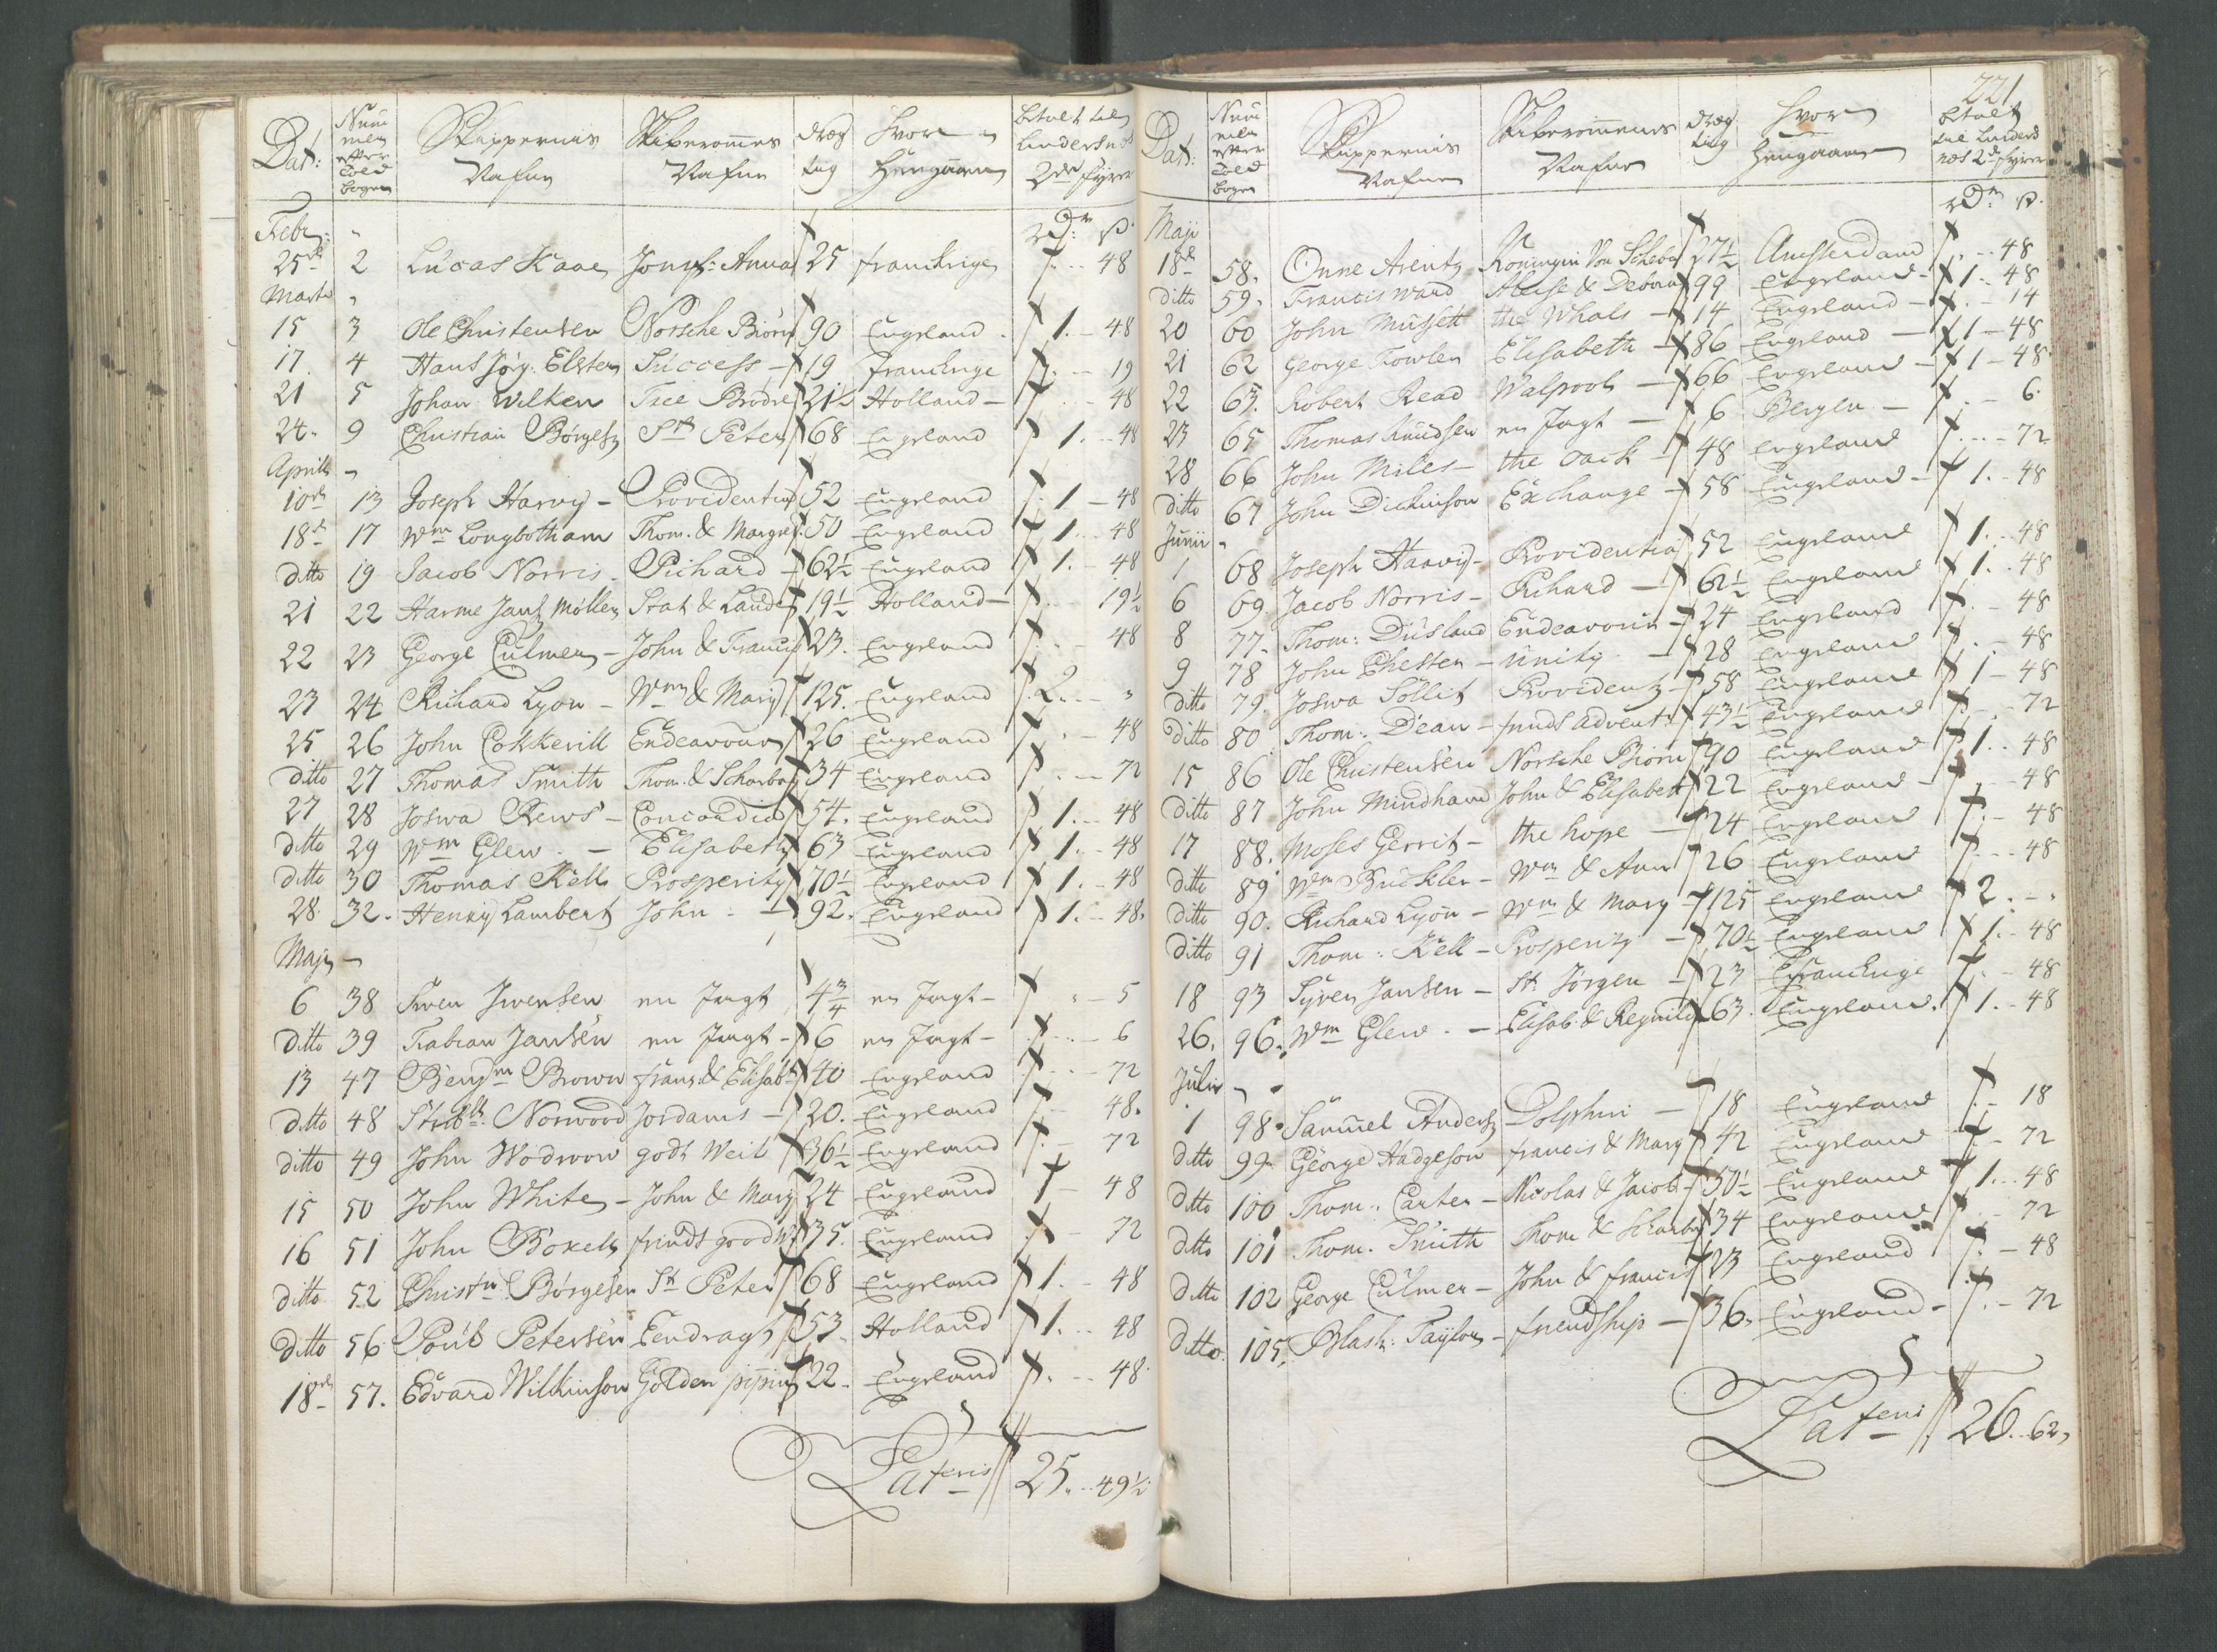 Dat: Num̄ meh efter told bogen Skippernis Nafne Skiberomes Nafne dræg tug hvor hengaaen betalt til Lindersnes 2de fyrer
Rdr: ß.
Febr:
25de 2 Lucas Kaae Jomf: Anna 25 franckrige - 48
Marti
15 3 Ole Christensen Norsche Biörn 90 Engeland 1. - 48
17 4 Hans Jörg: Elster Success - 19 franckrige - 19
21 5 Johan Wilken Tree Brödre 21½ Holland - 48
24. 9 Christian Börges St Peter 68 Engeland 1. - 48
Aprill
10de 13 Joseph Harvy - Providentia 52 Engeland 1 - 48
18de 17 Wm Longbotham Thom. & Margret 50 Engeland 1. - 48
ditto 19 Jacob Norris - Richard - 62½ Engeland 1. - 48
21 22 Harme Jans Möller Stat & Lande 19½ Holland - 19½
22 23 George Culmer - John & Francis 23. Engeland - 48
23 24 Richard Lyon - Wm & Mary 125. Engeland 2. - "
25 26 John Cokkerill Endeavour 26 Engeland - 48
ditto 27 Thomas Smith Thom. & Scharbo 34 Engeland - 72
27 28 Joswa Rews - Concordia 54. Engeland 1. - 48
ditto 29 Wm Glew. - Elisabeth 63 Engeland 1. - 48
ditto 30 Thomas Kell Prosperity 70½ Engeland 1. - 48
28 32. Henry Lambert John - 92. Engeland 1. - 48.
Maji
6 38 Swen Iwersen en Jagt 4¾ en Jagt - 5
ditto 39 Fabian Jansen en Jagt - 6 en Jagt - 6
13 47 Benjm Brown frans & Elisab: 40 Engeland - 72
ditto 48 Norwood Jordams - 20. Engeland 48.
ditto 49 John Wodwow godt Weil 36½ Engeland - 72
15 50 John White - John & Mary 24 Engeland - 48
16 51 John Bokels frinds good W 35. Engeland - 72
ditto 52 Christn Börgesen St Peter 68 Engeland 1. - 48
ditto 56 Poul Petersen Eendragt 53 Holland 1. - 48
18de 57. Edvard Wilkinson Golden pipin 22. Engeland - 48
Lateris 25. - 49½
221
Dat: Num̄ meh efter told bogen Skippernis Nafne Skiberomens Nafne dræg tug hvor hengaaen betalt til Linders næs 2de fyrer
Rdr: ß.
Maji
18de 58. Onne Arents Koningin Von Scheba 27½ Amsterdam - 48
ditto 59. Francis Ward & Debora 99 Engeland - 1 - 48
20 60 John Mussett the Whale - 14 Engeland - 14
21 62 George Fowler Elisabeth - 86 Engeland - 1 - 48
22 63. Robert Read Walpool - 66 Engeland - 1 - 48
23 65 Thomas Knudsen en Jagt - 6 Bergen - 6.
28 66 John Miles - the oack - 48 Engeland - 72
ditto 67 John Dickinson Exchange - 58 Engeland - 1. - 48
Junii
1 68 Joseph Haavy - Providentia 52 Engeland 1. - 48
6 69. Jacob Norris - Richard - 62½ Engeland 1. - 48
8 77. Thom: Dusland Endeavour - 24 Engeland - 48
9 78 John Chester - Unity - 28 Engeland - 48
ditto 79. Joswa Sollit Providentz - 58 Engeland 1 - 48
ditto 80 Thom: Dean - frinds advent: 43½ Engeland - 72
15 86 Ole Christensen Norsche Biörn 90 Engeland 1. - 48
ditto 87 John Mindham John & Elisabeth 22 Engeland - 48
17 88. Moses Gerrit - the hope - 24 Engeland - 48
ditto 89 Wm Buckler - Wm & Ann 26 Engeland - 48
ditto 90. Richard Lyon - Wm & Mary - 125 Engeland 2. - "
ditto 91 Thom: Kell - Prosperity - 70½ Engeland 1. - 48
18 93 Syver Jansen - St Jörgen - 23 franckrige - 48
26. 96. Wm Glew. - Elisab: & Regnild 63. Engeland. 1. - 48
Julii
1 98. Samuel Anders Dolphin - 18 Engeland - 18
ditto 99. George Hadgeson francis & Mary 42 Engeland - 72
ditto 100 Thom: Carter - Nicolas & Jacob - 50½ Engeland 1. - 48
ditto 101 Thom. Smith Thom & Scharbo 34 Engeland - 72
ditto 102 George Culmer - John & francis 23 Engeland - 48
ditto 105. Taylor - friendship - 36. Engeland - 72
Lateris 26. - 62.